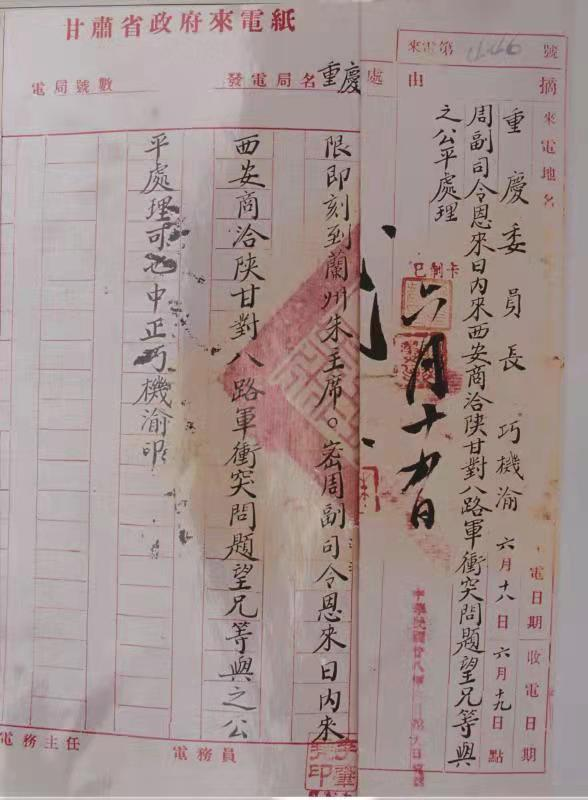 來電第 號
摘 由
來電地名
重慶委員長 巧機渝 六月十八日 六月十九日
電日期 收電日期 點
周副司令恩來日內來西安商洽陝甘對八路軍衝突問題望兄等與
之公平處理
已制卡
六月十九日
甘肅省政府來電紙
處
發電局名 重慶
電局號數
限即刻到蘭州朱主席。密周副司令恩來日內來
西安商洽陝甘對八路軍衝突問題望兄等與之公
平處理可也中正巧機渝印
電務員
電務主任